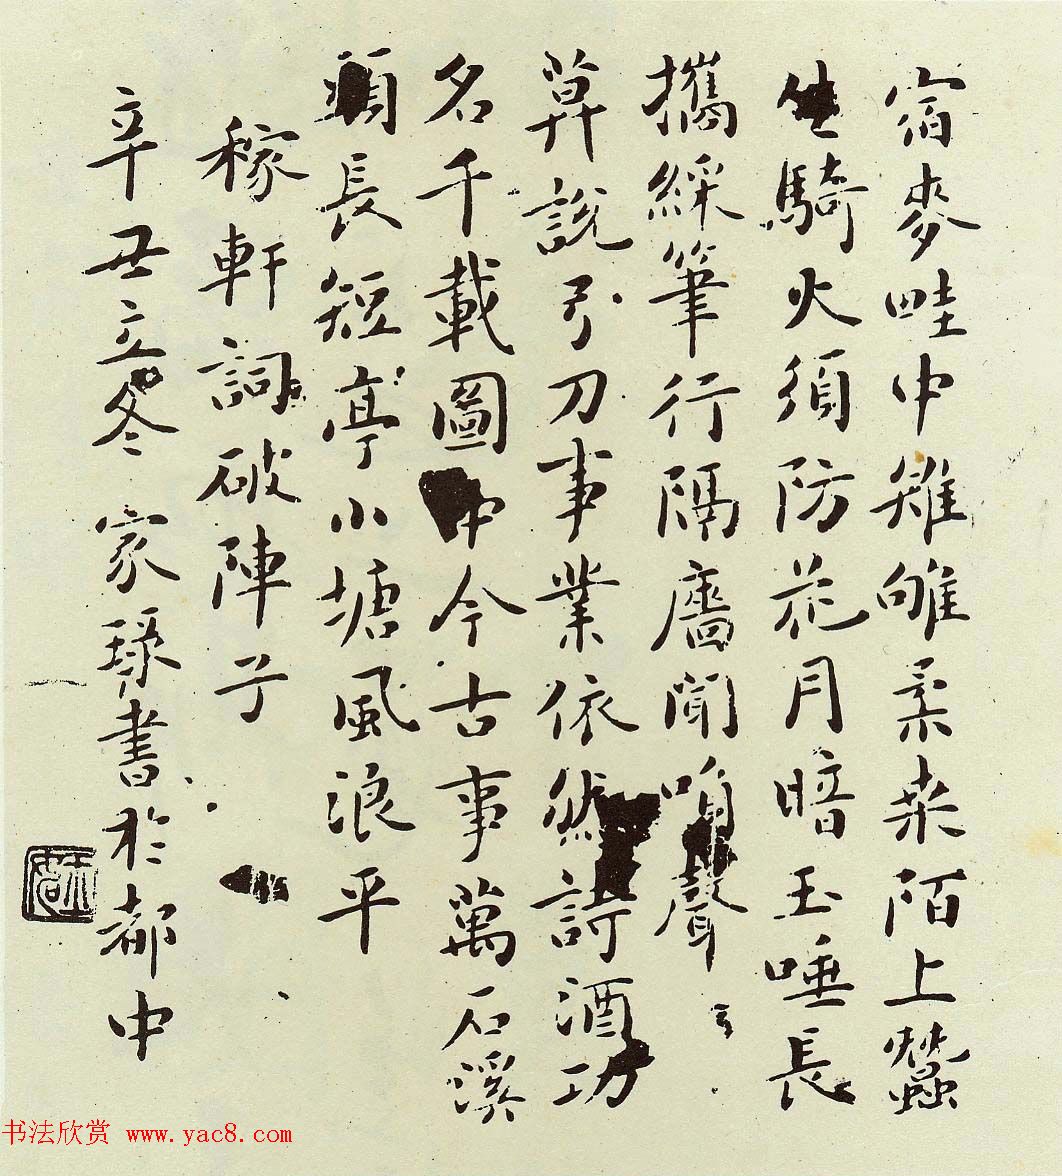 宿麥畦中雉柔桑陌上蠶
生騎火須防花月暗玉唾長
攜綵筆行隔廧聞聲
莫說弓刀事業依然詩酒功
名千載圖中今古事萬石溪
頭長短亭小塘風浪平
稼軒詞破陣子
辛丑立冬 家書於都中
书法欣赏 www.yac8.com